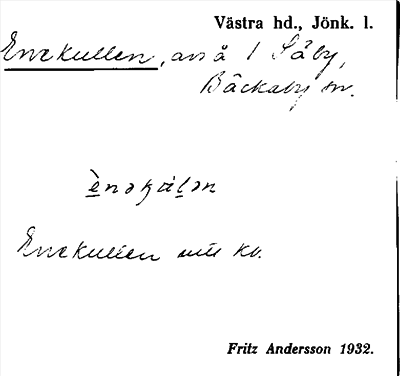 Västra hd., Jönk. l.
Enekullen, avs å 1 Säby,
Bäckaby sn.
Enekullen enl kv.
Fritz Andersson 1932.